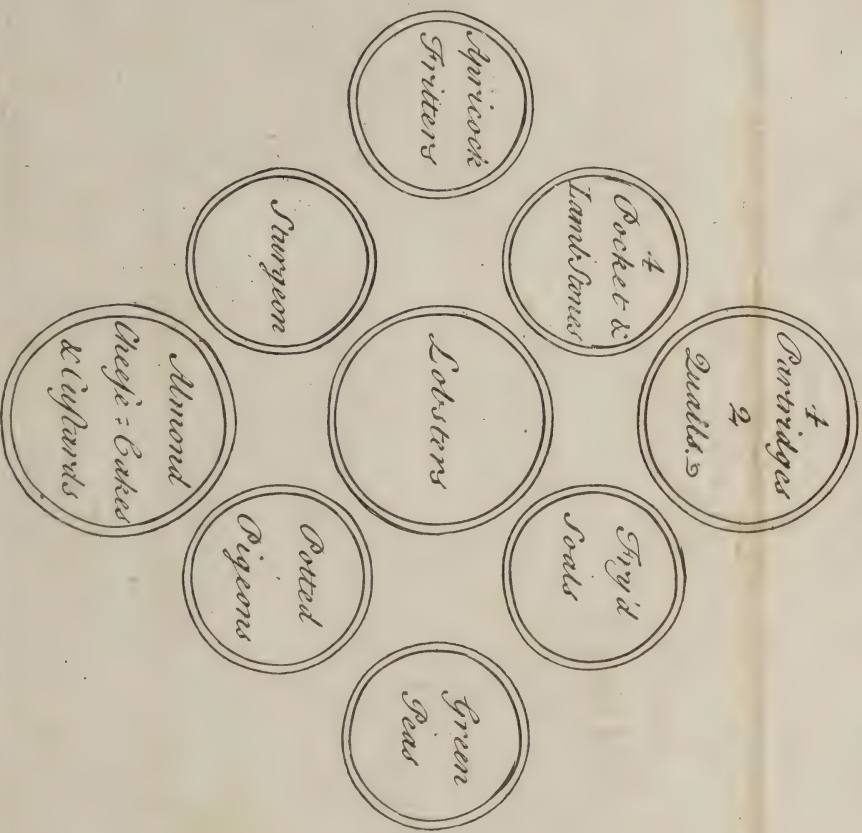 4
Partridges
2
Quails.
A
Pocket &
Lamb Stones
Fry'd
Soals
Apricock
Fritters
Lobsters
Green
Peas
Sturgeon
Potted
Pigeons
Almond
Cheeſe=Cakes
& Cuſtards